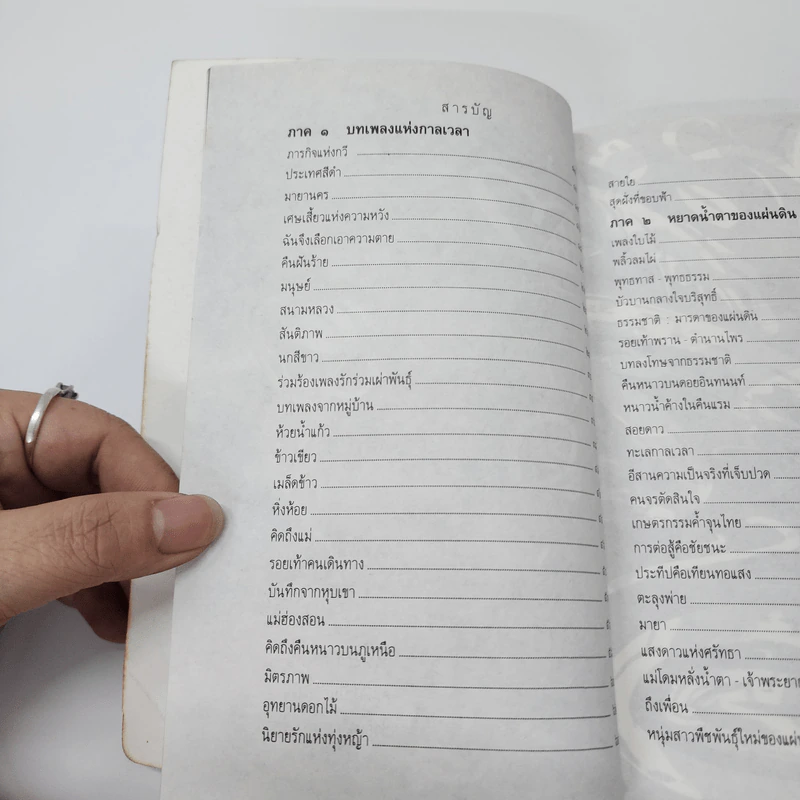 สารบัญ
ภาค ๑ บทเพลงแห่งกาลเวลา
ภารกิจแห่งกวี
ประเทศสีดำ
มายานคร
เศษเสี้ยวแห่งความหวัง
ฉันจึงเลือกเอาความตาย
คืนฝันร้าย
มนุษย์
สนามหลวง
สันติภาพ
นกสีขาว
ร่วมร้องเพลงรักร่วมเผ่าพันธุ์
บทเพลงจากหมู่บ้าน
ห้วยน้ำแก้ว
ข้าวเขียว
เมล็ดข้าว
หิ่งห้อย
คิดถึงแม่
รอยเท้าคนเดินทาง
บันทึกจากหุบเขา
แม่ฮ่องสอน
คิดถึงคืนหนาวบนภูเหนือ
มิตรภาพ
อุทยานดอกไม้
นิยายรักแห่งทุ่งหญ้า
สายใย
สุดฝั่งที่ขอบฟ้า
ภาค ๒ หยาดน้ำตาของแผ่นดิน
เพลงใบไม้
พลิ้วลมไผ่
พุทธทาส - พุทธธรรม
บัวบานกลางใจบริสุทธิ์
ธรรมชาติ : มารดาของแผ่นดิน
รอยเท้าพราน - ตำนานไพร
บทลงโทษจากธรรมชาติ
คืนหนาวบนดอยอินทนนท์
หนาวน้ำค้างในคืนแรม
สอยดาว
ทะเลกาลเวลา
อีสานความเป็นจริงที่เจ็บปวด
คนจรตัดสินใจ
เกษตรกรรมค้ำจุนไทย
การต่อสู้คือชัยชนะ
ประทีปคือเทียนทอแสง
ตะลุงพ่าย
มายา
แสงดาวแห่งศรัทธา
แม่โดมหลั่งน้ำตา - เจ้าพระยา
ถึงเพื่อน
หนุ่มสาวพืชพันธุ์ใหม่ของ